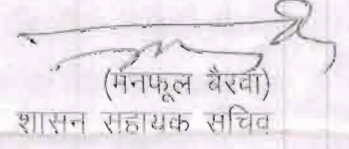 (मनफूल बैरवा)
शासन सहायक सचिव